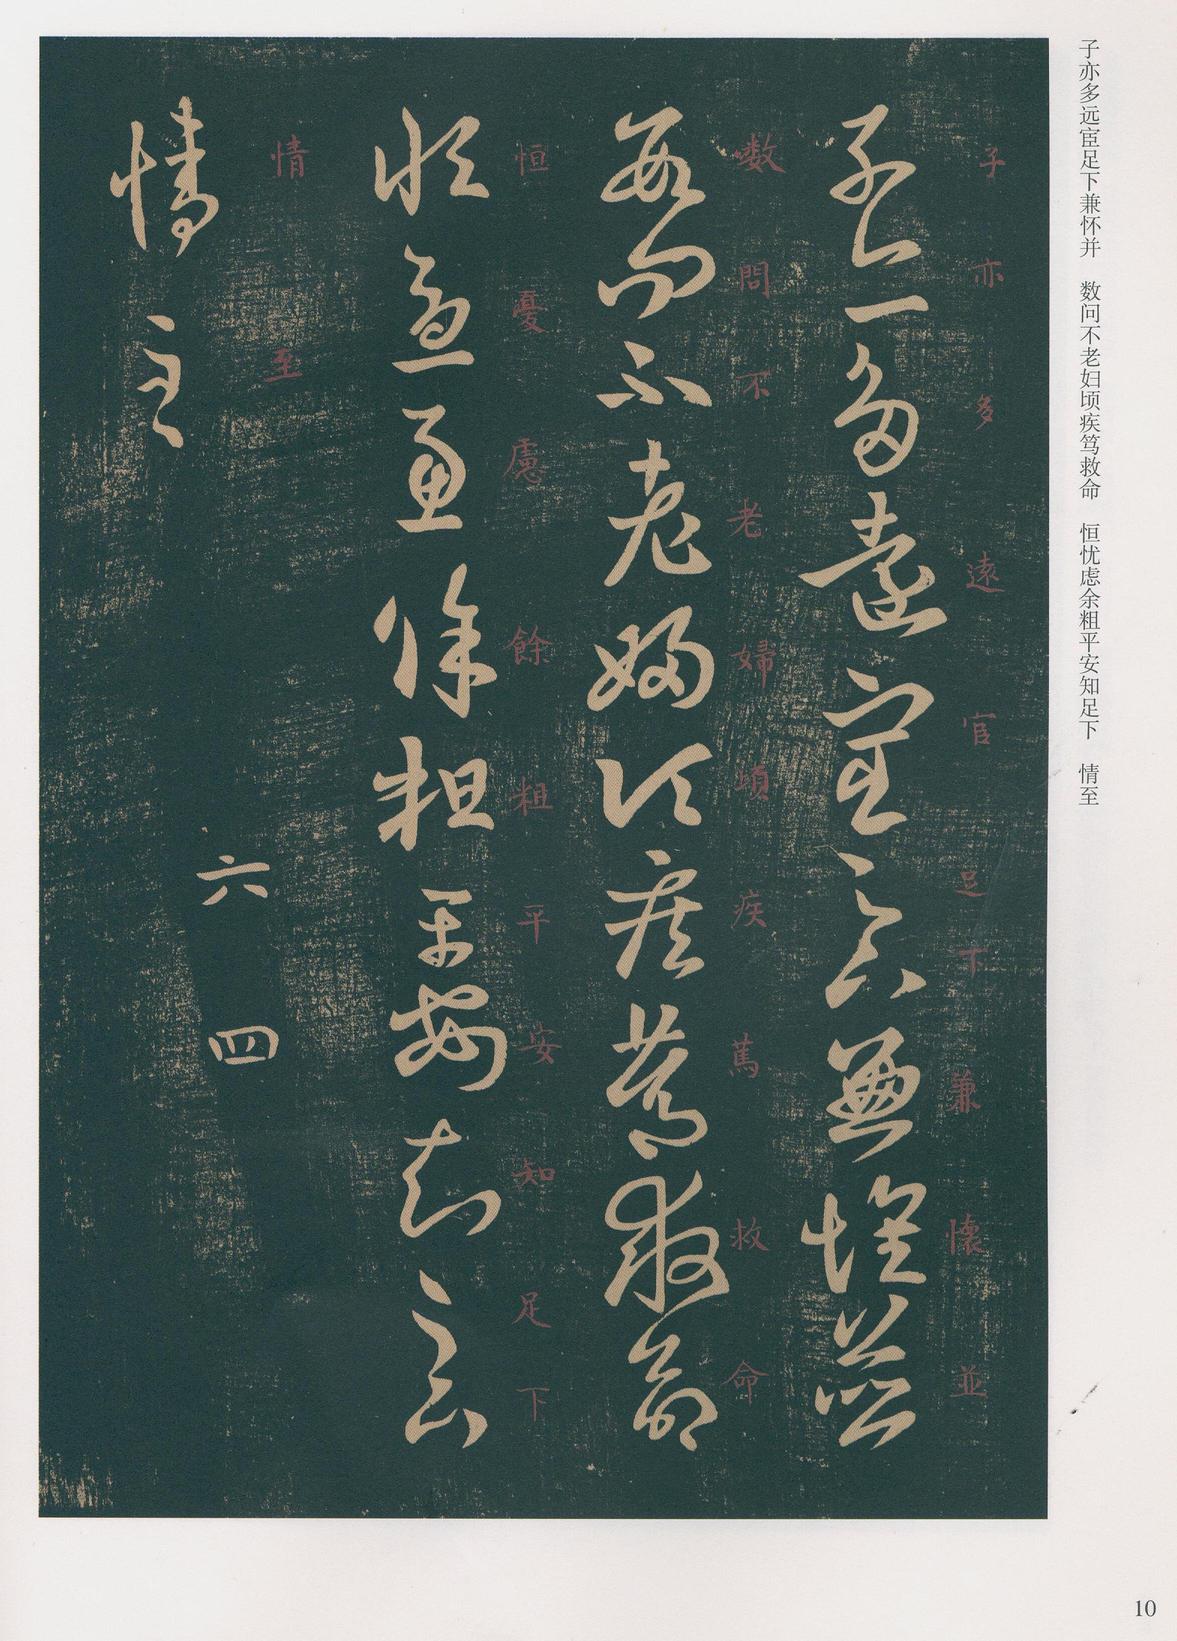 子亦多远宦足下兼怀并　数问不老妇顷疾笃救命　恒忧虑余粗平安知足下　情至
子亦多遠宦足下兼懷並
子亦多遠官足下兼懷並
數問不老婦頃疾篤救命
數問不老婦頃疾篤救命
恒憂慮餘粗平安知足下
恒憂慮餘粗平安知足下
情至
情至
六四
10